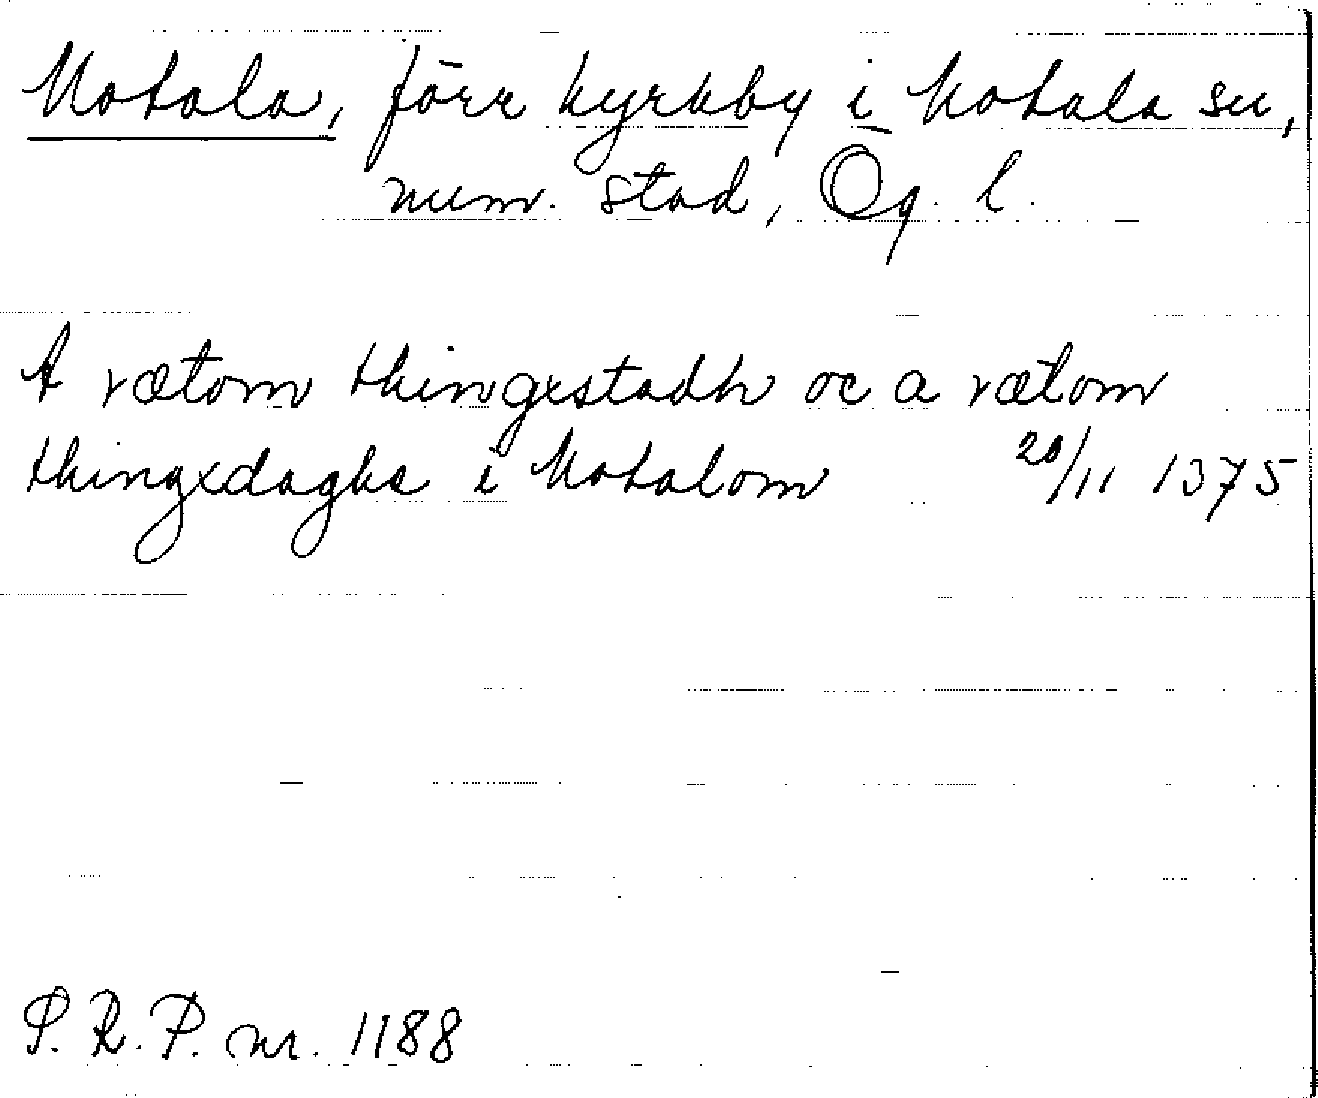 Motala, förr kyrkby i Motala sn,
num. stad, Ög. l.
A rætom thingxstadh oc a rætom
thingxdaghe i Motalom 20/11 1375
S. R. P. nr. 1188